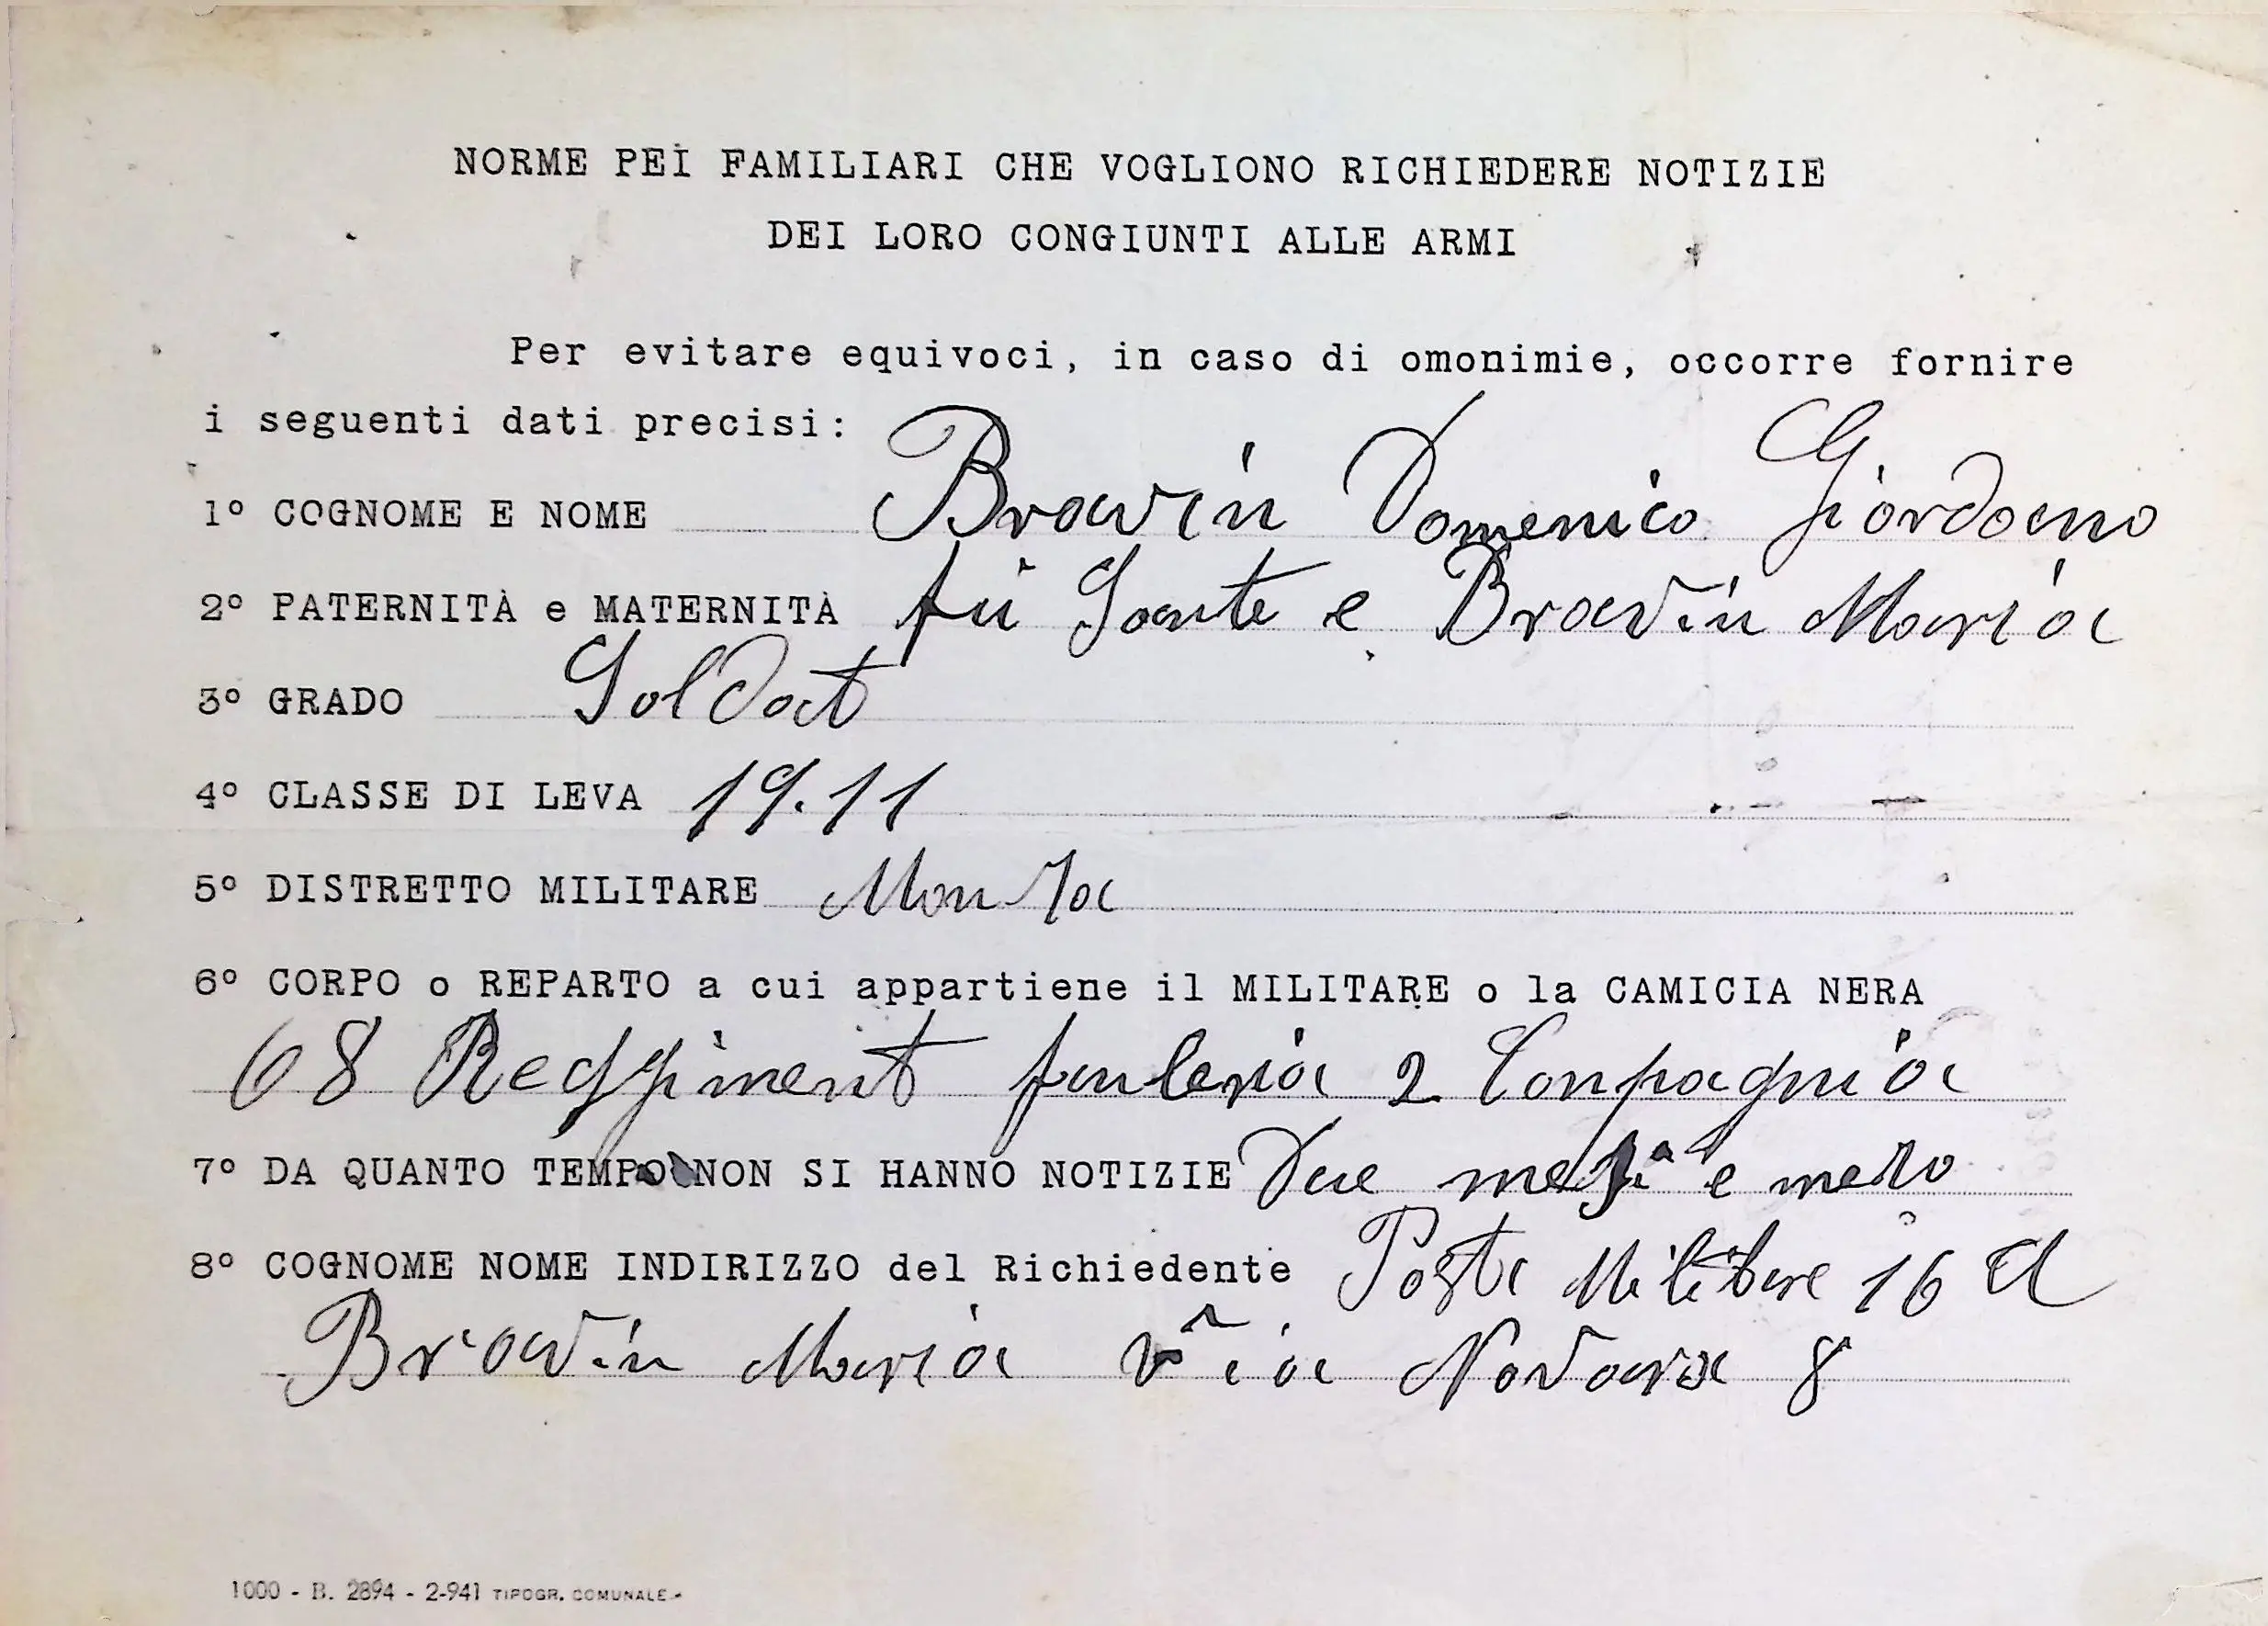 NORME PEI FAMILIARI CHE VOGLIONO RICHIEDERE NOTIZIE
DEI LORO CONGIUNTI ALLE ARMI
Per evitare equivoci, in caso di omonimie, occorre fornire
i seguenti dati precisi:
1° COGNOME E NOME Bravin Domenico Giordano
2° PATERNITÀ e MATERNITÀ fu Sante e Bravin Maria
3° GRADO Soldat
4° CLASSE DI LEVA 19.11
5° DISTRETTO MILITARE Monza
6° CORPO o REPARTO a cui appartiene il MILITARE o la CAMICIA NERA
68 Reggiment fanteria 2 Conpagnia
7° DA QUANTO TEMPO NON SI HANNO NOTIZIE Due mesi e mezo
8° COGNOME NOME INDIRIZZO del Richiedente Posta Militare 16 A
Bravin Maria via Novara 8
1000 - B. 2894 - 2-941 TIPOGR. COMUNALE.-